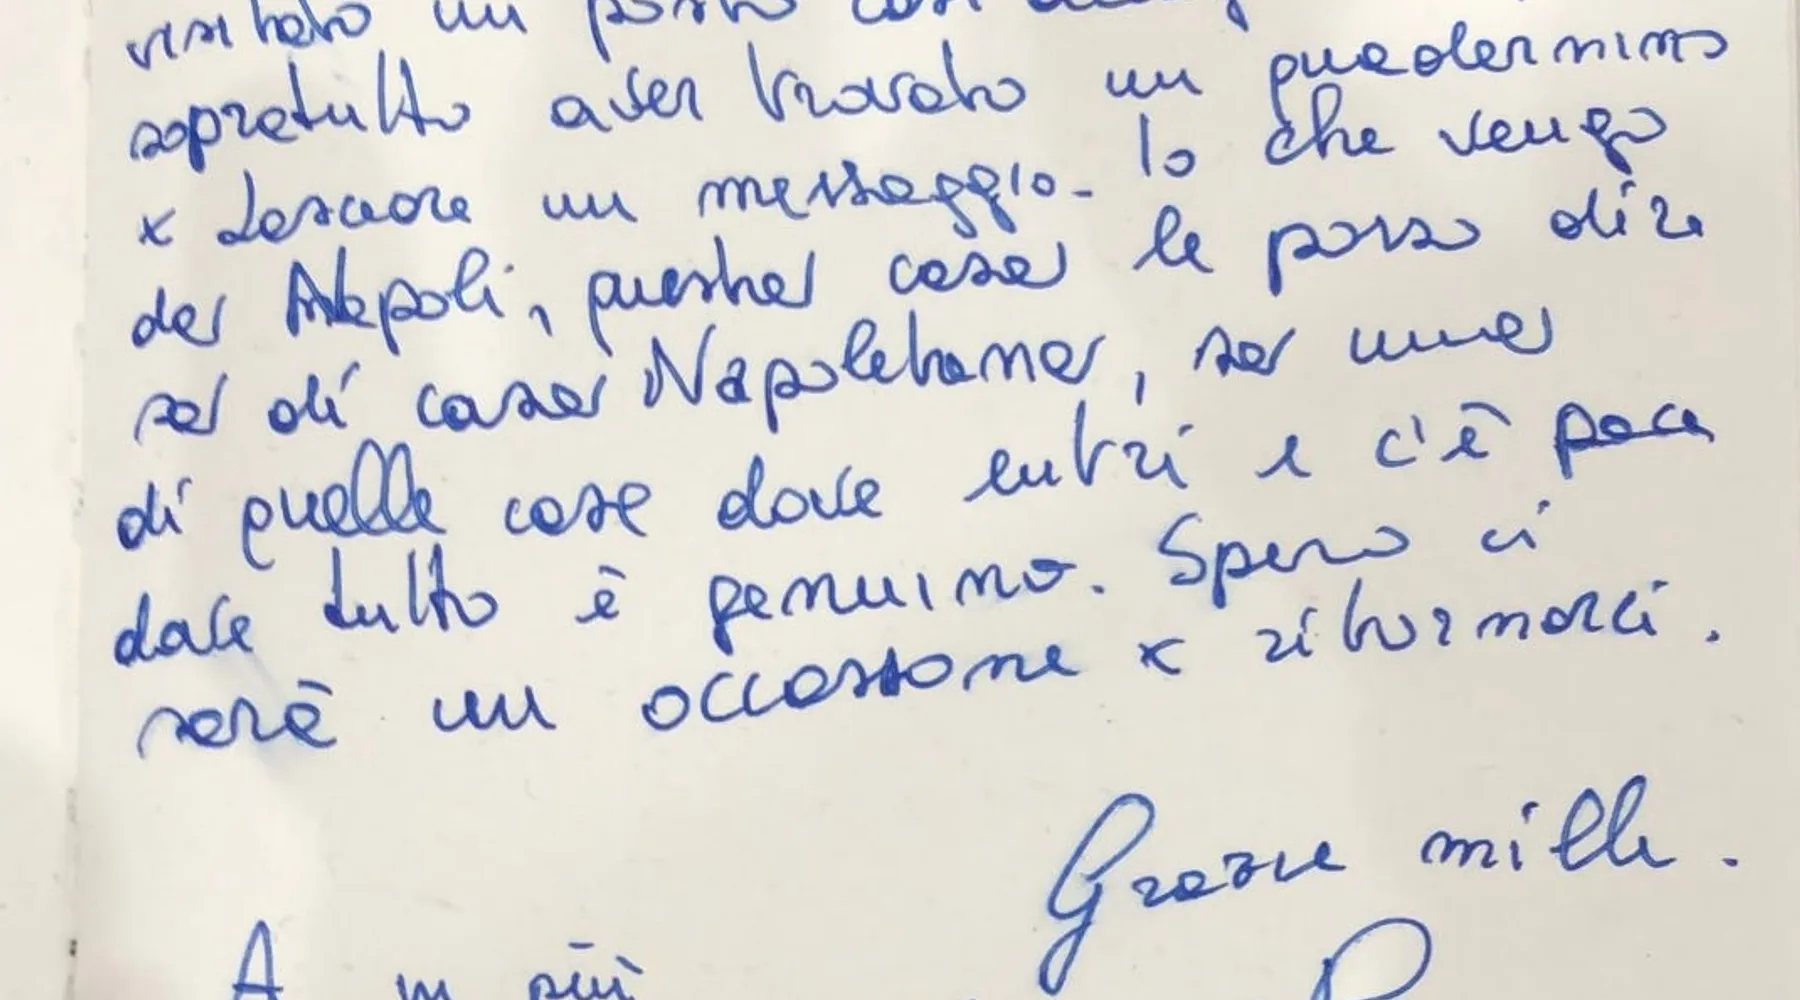 visitato un posto così
sopratutto aver trovato un quadernino
x lasciare un messaggio. Io che vengo
da Napoli, questa casa le posso dire
sa di casa Napoletana, sa una
di quelle case dove entri e c'è pace
dove tutto è genuino. Spero ci
sarà un occassione x ritornarci.
Grazie mille.
A in più